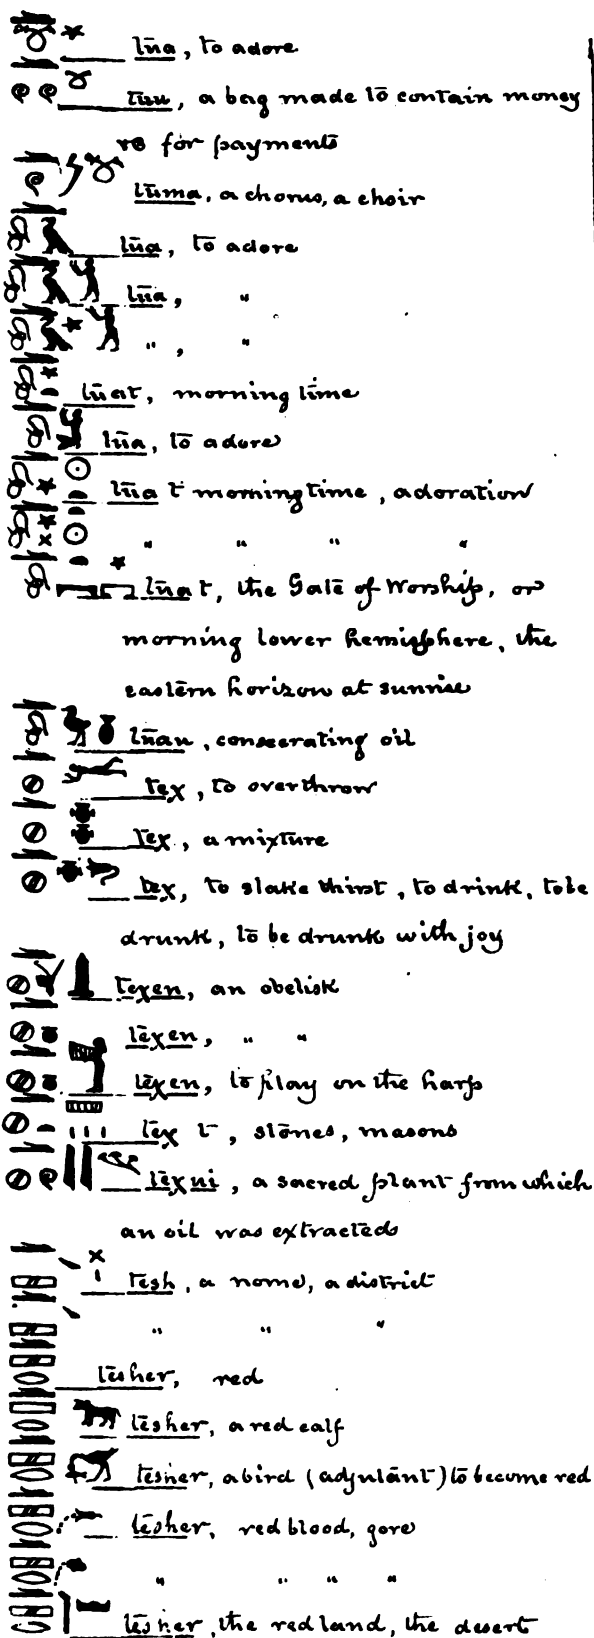 tūa, to adore
tuu, a bag made to contain money
for payments
tūma, a chorus, a choir
tūa, to adore
tūa, "
", "
tūat, morning time
tūa, to adore
tūa t morning time, adoration
" " " "
tūat, the Gate of Worship, or
morning lower hemisphere, the
eastern horizon at sunrise
tūau, consecrating oil
teχ, to overthrow
teχ, a mixture
teχ, to slake thirst, to drink, to be
drunk, to be drunk with joy
teχen, an obelisk
teχen, " "
teχen, to play on the harp
teχ t, stones, masons
teχni, a sacred plant from which
an oil was extracted
tesh, a nome, a district
" " "
tesher, red
tesher, a red calf
tesher, a bird (adjutant) to become red
tesher, red blood, gore
" " " "
tesher, the red land, the desert